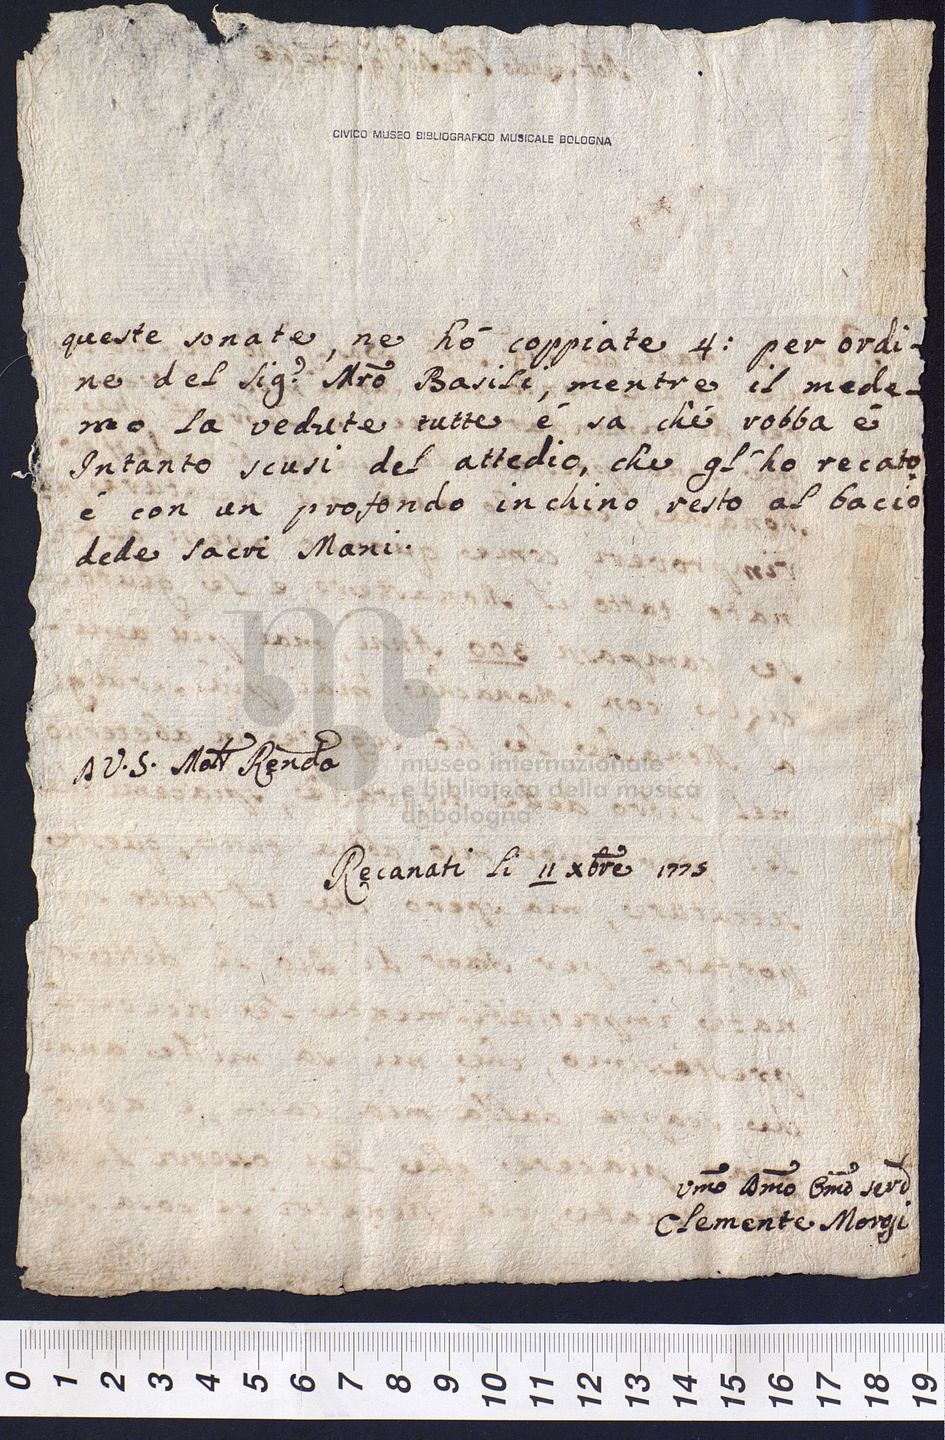 CIVICO MUSEO BIBLIOGRAFICO MUSICALE BOLOGNA
queste sonate, ne hó coppiate 4: per ordi-
ne del Sig.e Mrõ Basili, mentre il mede-
mo la vedute tutte é sa ché robba é
Intanto scusi del attedio, che gl'ho recato
é con un profondo inchino resto al bacio
dede sacri Mani.
A V. S. Molt Renda
museo internazionale
e biblioteca della musica
di bologna
Recanati li 11 xbre 1775
Vmo Dmo Omo serd
Clemente Morgi
0 1 2 3 4 5 6 7 8 9 10 11 12 13 14 15 16 17 18 19